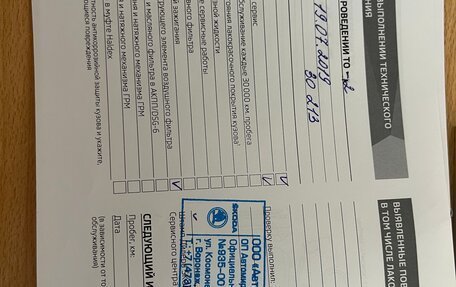 ВЫПОЛНЕНИИ ТЕХНИЧЕСКОГО
ПРОВЕДЕНИИ ТО -2
19.07.2019
30 213
сервис
обслуживание каждые 30 000 км. пробега
состояния лакокрасочного покрытия кузова
ные сервисные работы
ной жидкости
й зажигания
рующего элемента воздушного фильтра
и масляного фильтра в АКПП/DSG-6
я и натяжного механизма ГРМ
и натяжного механизма ГРМ
в муфте Haldex
тность антикоррозийной защиты кузова и укажите,
щиеся повреждения
ВЫЯВЛЕННЫЕ ПОВ
В ТОМ ЧИСЛЕ ЛАКО
Проверку выполнил:
ООО «Авт
ОП Автомир
Официальн
№935-00
ул. Космоне
г. Воронеж,
SKODA
Сервисного центра
СЛЕДУЮЩИЙ И
Дата
Пробег, км:
(в зависимости от то
обслуживания)